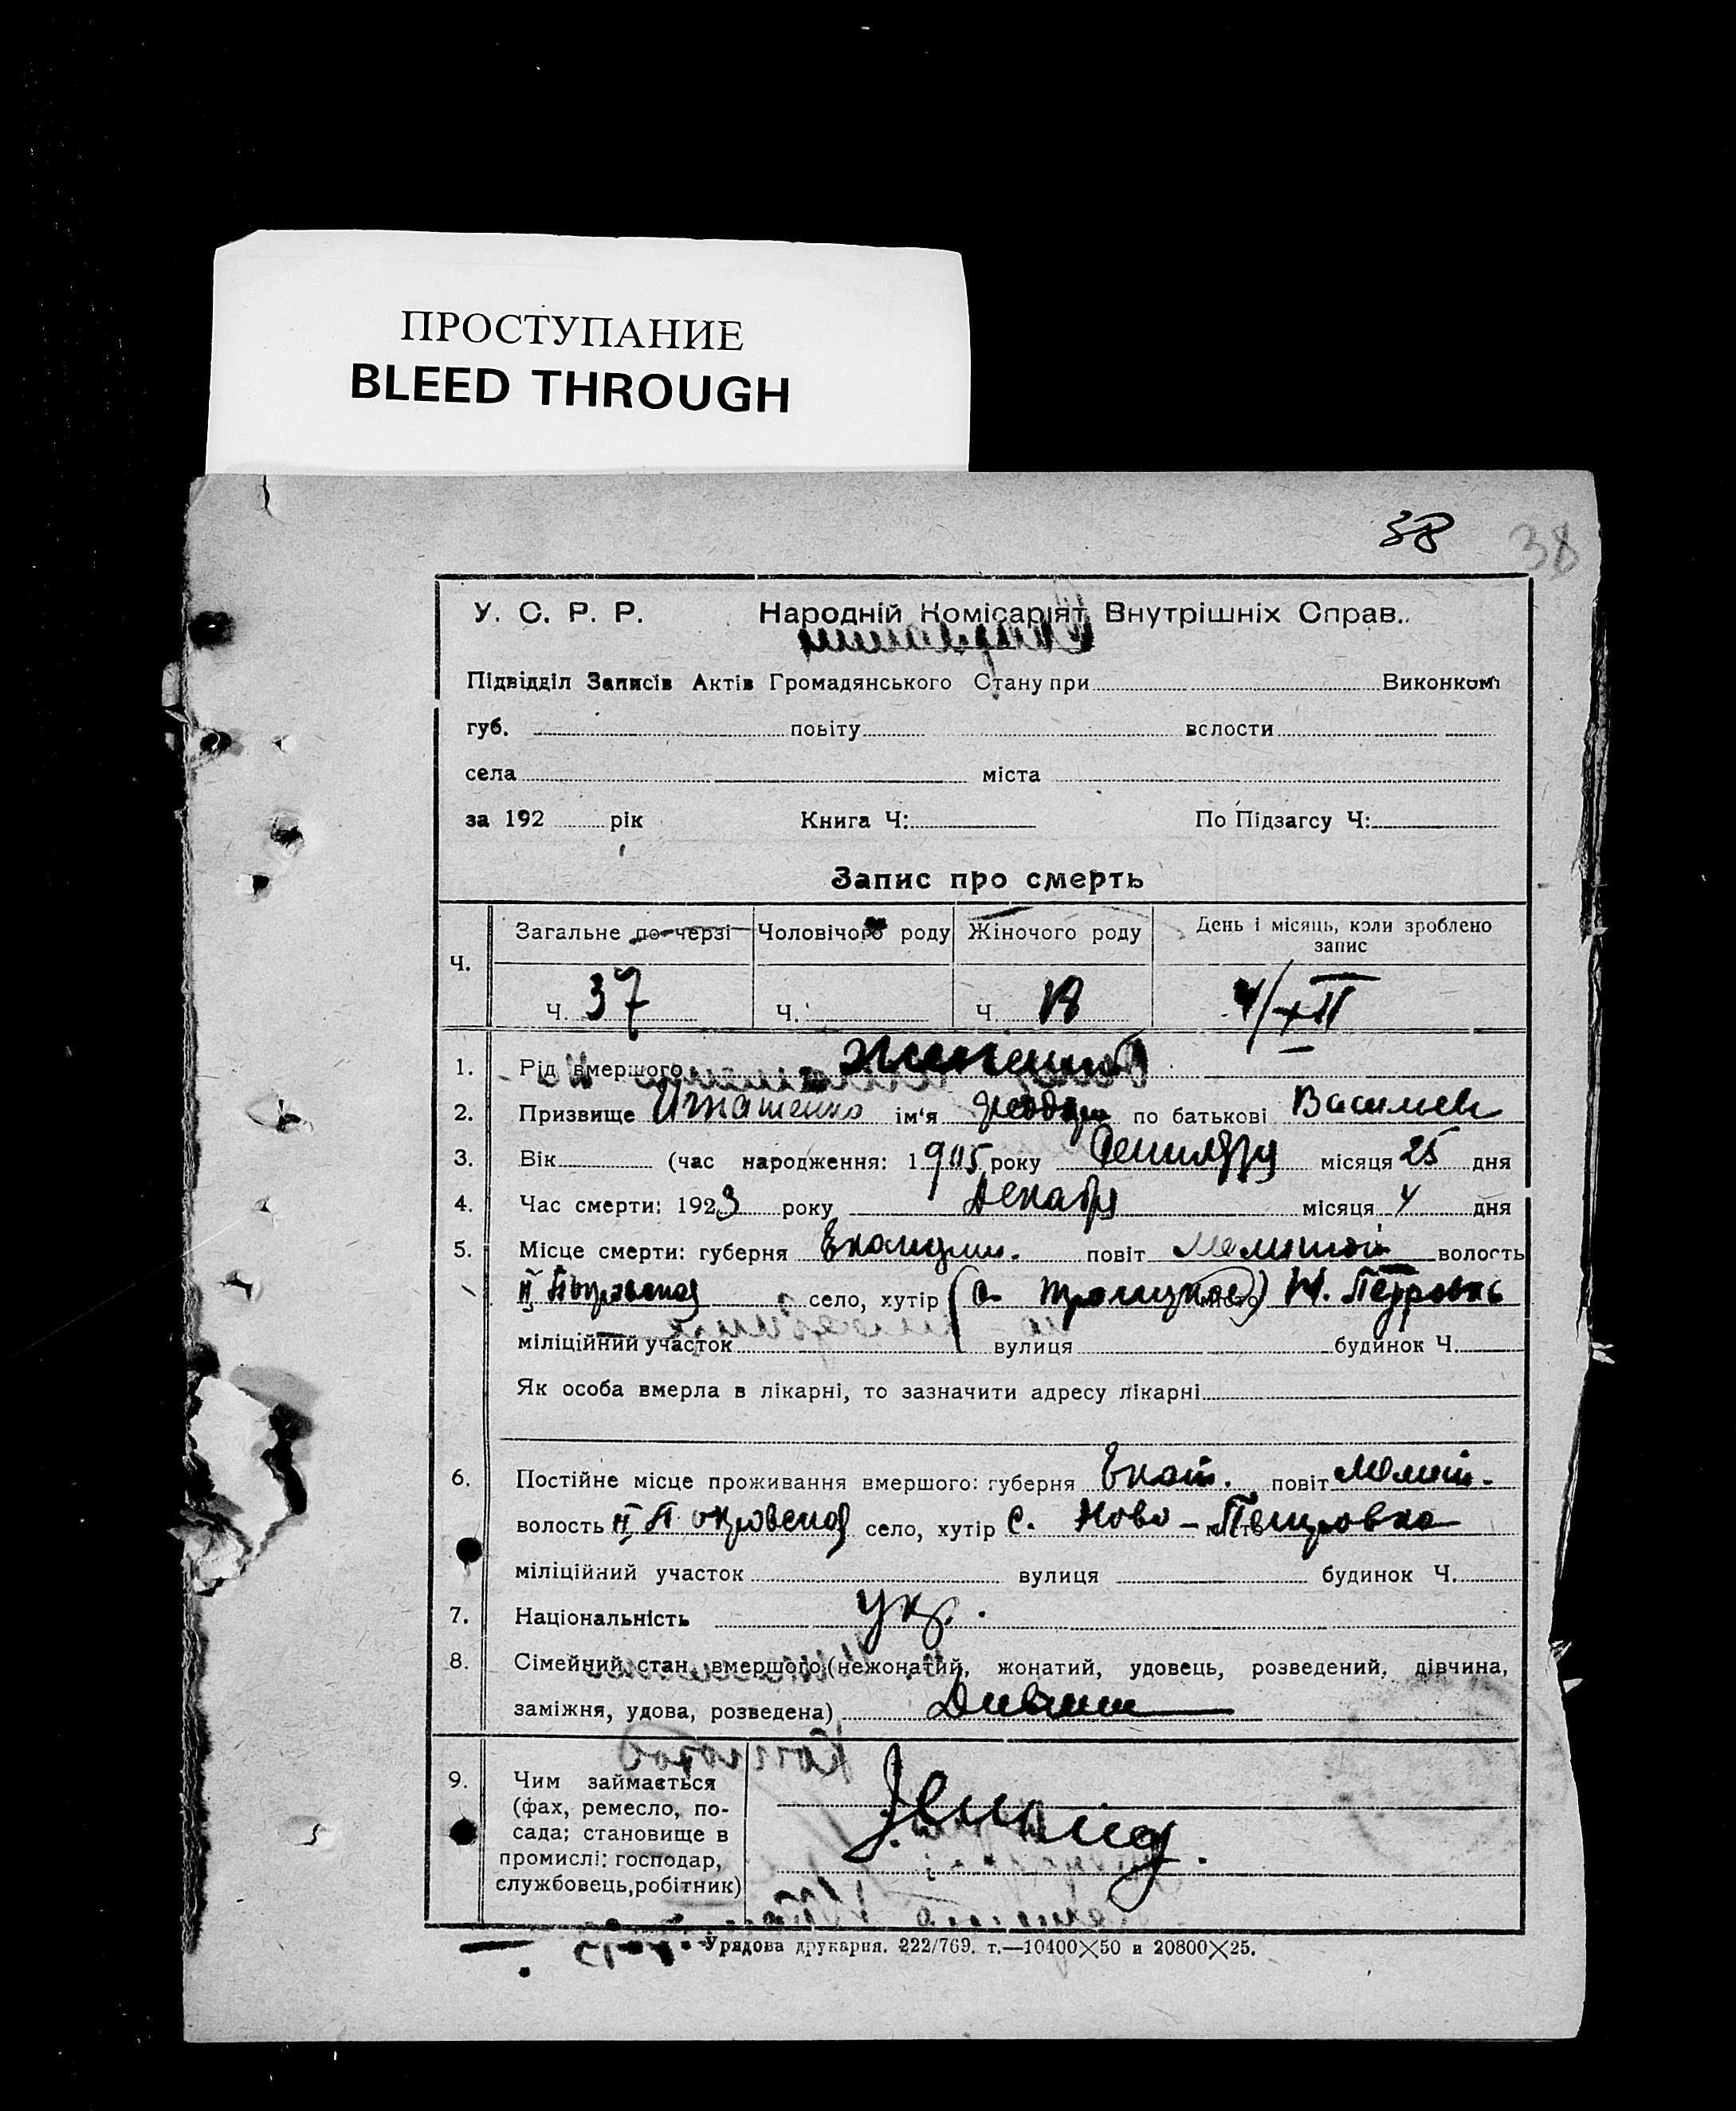 ПРОСТУПАНИЕ
BLEED THROUGH
38 38
У. С. Р. Р. Народній Комісаріят Внутрішніх Справ.
Підвідділ Записів Актів Громадянського Стану при Виконком
губ. повіту волости
села міста
за 192 рік Книга Ч: По Підзагсу Ч:
Запис про смерть
Загальне по черзі Чоловічого роду Жіночого роду День і місяць, коли зроблено
запис
Ч.
Ч. 37 Ч. Ч. 4/XII
1. Рід вмершого
2. Призвище Игнатенко ім'я по батькові Василев
3. Вік (час народження: 1905 року місяця 25 дня
4. Час смерти: 1923 року Декабря місяця 4 дня
5. Місце смерти: губерня повіт волость
II Покровская село, хутір (с. Троицкое) Н. Петровкь
міліційний участок вулиця будинок Ч.
Як особа вмерла в лікарні, то зазначити адресу лікарні
6. Постійне місце проживання вмершого: губерня Екат. повіт Мелит.
волость II Покровская село, хутір с. Ново-Петровка
міліційний участок вулиця будинок Ч.
7. Національність укр.
8. Сімейний стан вмершого (нежонатий, жонатий, удовець, розведений, дівчина,
заміжня, удова, розведена)
9. Чим займається
(фах, ремесло, по-
сада; становище в
промислі: господар,
службовець, робітник)
Урядова друкарня. 222/769. т.—10400×50 и 20800×25.